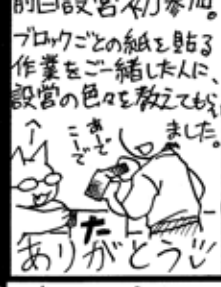 前日設営初参加。
ブロックごとの紙を貼る
作業をご一緒した人に、
設営の色々を教えてもらい
ました。
へー
あーで
こーで
た
ありがとう